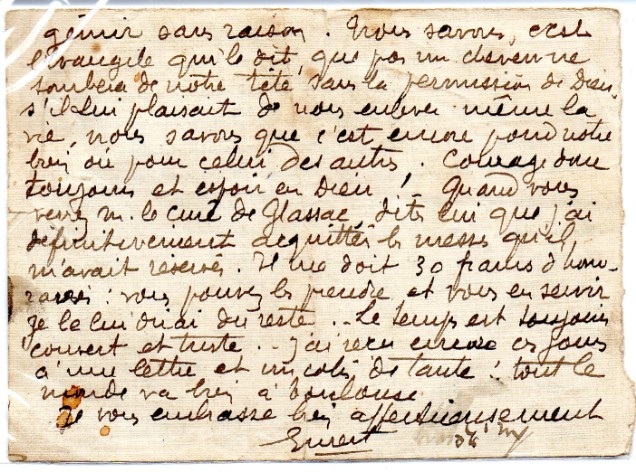 gémir sans raison. Nous savons, c'est
l'évangile qui le dit, que pas un cheveu ne
tombera de notre tête sans la permission de Dieu
s'il lui plaisait de nous enlever même la
vie, nous savons que c'est encore pour notre
bien ou pour celui des autres. Courage donc
toujours et espoir en Dieu ! Quand vous
verrez M. le curé de Glassac, dites lui que j'ai
définitivement acquitté les messes qu'il
m'avait réservés. Il me doit 30 francs d'hono-
raires : vous pouvez les prendre et vous en servir
je le lui dirai du reste .. Le temps est toujours
couvert et triste .. j'ai reçu ces jours
une lettre et un colis de tante : tout le
monde va bien à Toulouse.
Je vous embrasse bien affectueusement
Ernest